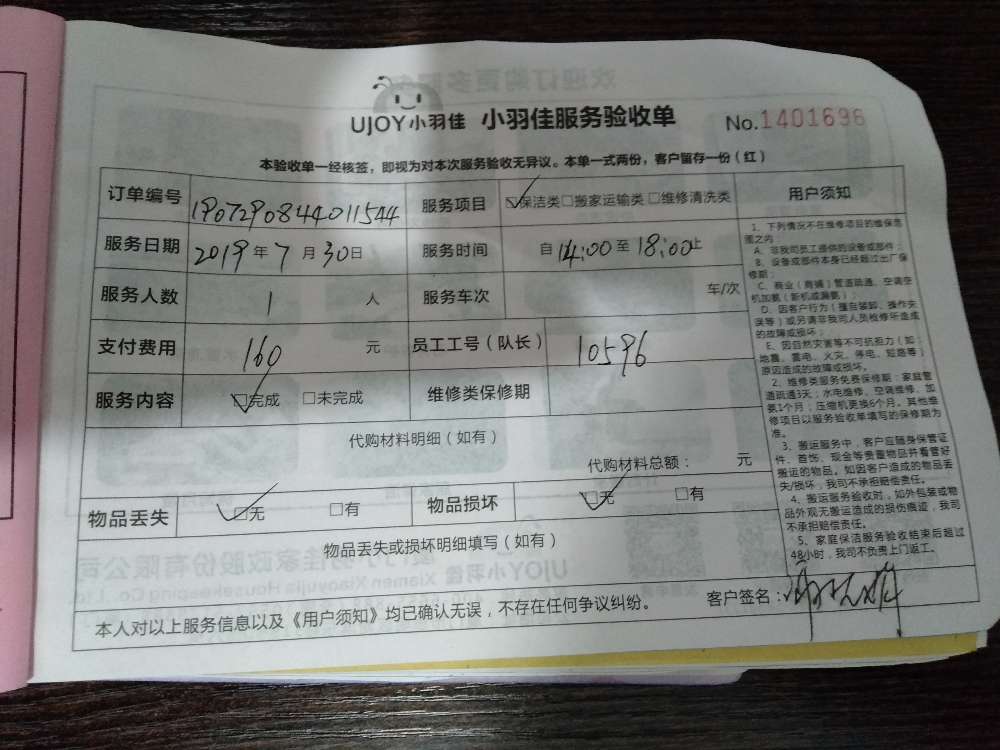 UJOY小羽佳 小羽佳服务验收单 No.1401696
本验收单一经核签，即视为对本次服务验收无异议。本单一式两份，客户留存一份（红）
订单编号 1907290844011544 服务项目 ☑保洁类□搬家运输类□维修清洗类
服务日期 2019年7月30日 服务时间 自14:00至18:00止
服务人数 1人 服务车次 车/次
支付费用 160元 员工工号（队长） 10596
服务内容 ☑完成 □未完成 维修类保修期
代购材料明细（如有）
代购材料总额： 元
物品丢失 ☑无 □有 物品损坏 ☑无 □有
物品丢失或损坏明细填写（如有）
本人对以上服务信息以及《用户须知》均已确认无误，不存在任何争议纠纷。 客户签名：
用户须知
1、下列情况不在维修项目的维保范
围之内
A、非我司员工提供的设备或部件；
B、设备或部件本身已经超过出厂保
修期；
C、商业（商铺）管道疏通、空调空
机加氨（新机或漏氨）；
D、因客户行为（擅自装卸、操作失
误等）或另请非我司人员检修所造成
的故障或损坏；
E、因自然灾害等不可抗拒力（如
地震、雷电、火灾、停电、短路等）
原因造成的故障或损坏。
2、维修类服务免费保修期：家庭管
道疏通3天；水电维修、空调维修、加
氨1个月；压缩机更换6个月，其他维
修项目以服务验收单填写的保修期为
准。
3、搬运服务中，客户应随身保管证
件、首饰、现金等贵重物品并看管好
搬运的物品。如因客户造成的物品丢
失/损坏，我司不承担赔偿责任。
4、搬运服务验收时，如外包装或物
品外观无搬运造成的损伤痕迹，我司
不承担赔偿责任。
5、家庭保洁服务验收结束后超过
48小时，我司不负责上门返工。